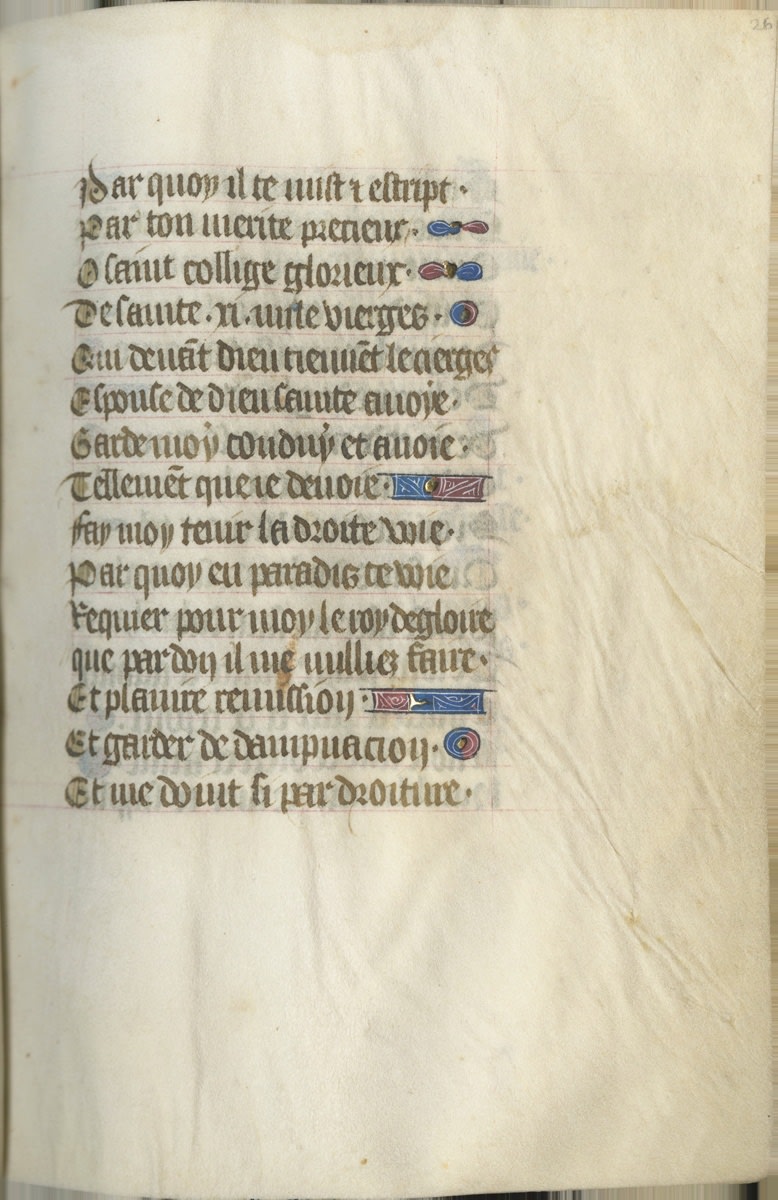 26
Par quoy il te mist ⁊ estript ·
Par ton merite precieux ·
O saint collige glorieux ·
De sainte · xi · mile vierges ·
Qui deuāt dieu tiennēt le cierges
Espouse de dieu sainte auoye ·
Garde moy conduy et auoie ·
Tellemēt que ie deuoie ·
fay moy tenir la droite voie ·
Par quoy en paradis te voie
Requier pour moy le roy de gloire
que pardon il me uullies faire ·
Et planire remission ·
Et garder de dampnacion ·
Et me doint si par droiture ·